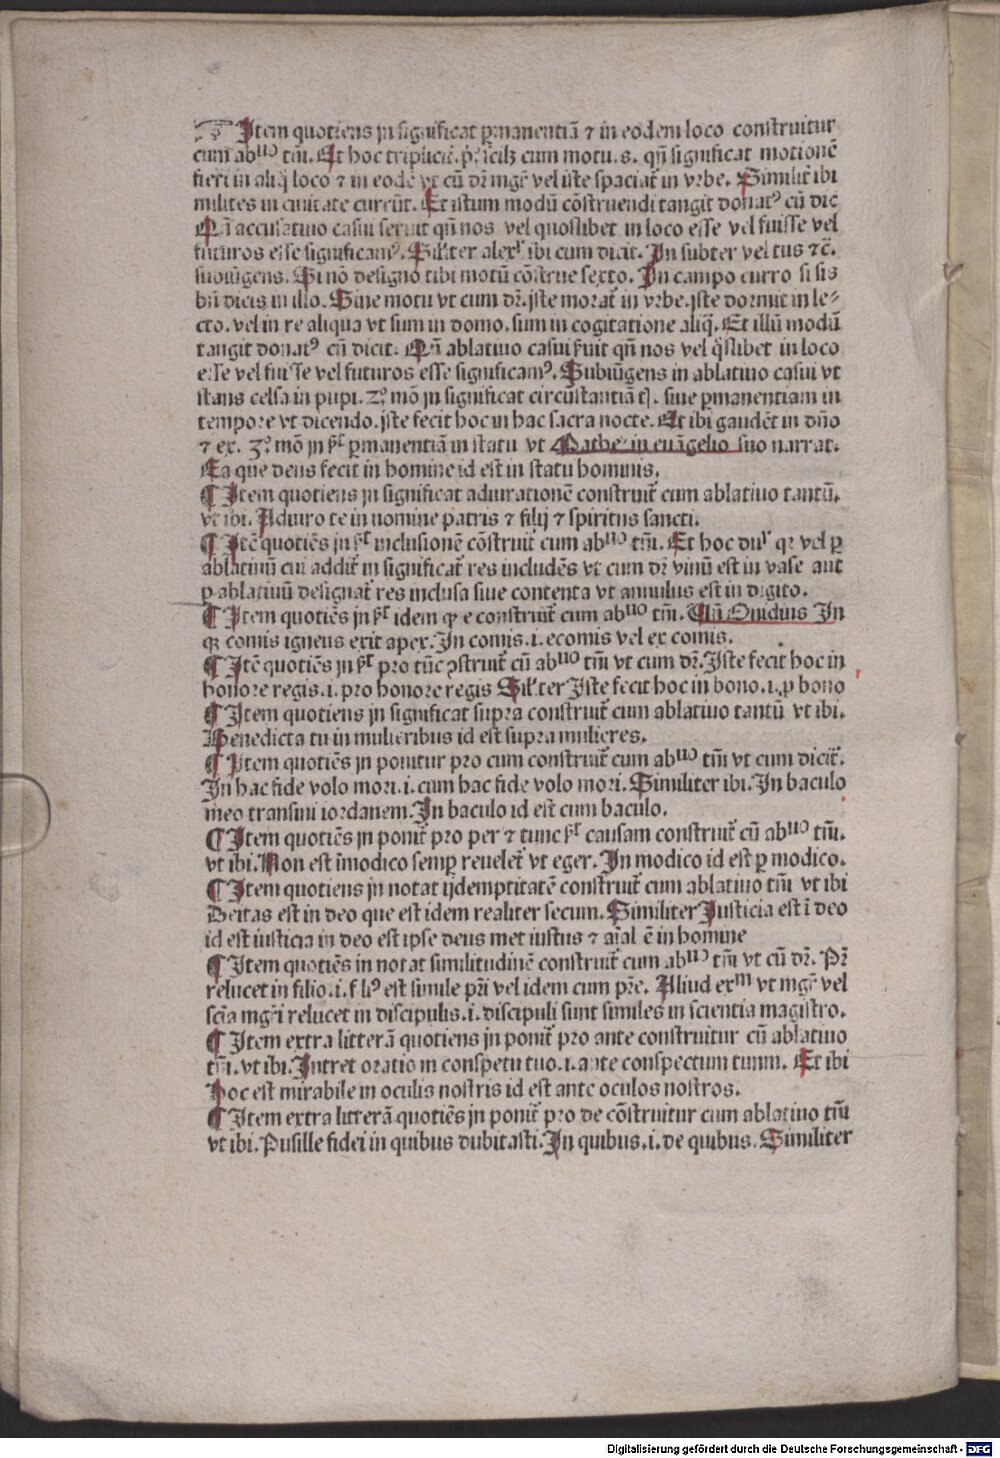 ¶ Item quotiens jn significat ꝑmanentiā ⁊ in eodem loco construitur
cum abⁿᵒ tm̄. Et hoc triplicit̄. p̄ͦ sciꝫ cum motu. s. qn̄ significat motionē
fieri in aliq̄ loco ⁊ in eodē vt cū dr̄ mgr̄ vel iste spaciat̄ in vrbe. Similit̄ ibi
milites in ciuitate currūt. Et istum modū cōstruendi tangit donatꝰ cū dic̄
Qn̄ accusatiuo casui seruit qn̄ nos vel quoslibet in loco esse vel fuisse vel
futuros esse significamꝰ. Silʳter alexʳ ibi cum dicit. In subter vel tus ⁊c̄.
subiūgens. Si nō designo tibi motū cōstrue sexto. In campo curro si sis
bn̄ dicis in illo. Sine motu vt cum dr̄. jste morat̄ in vrbe. jste dormit in le⸗
cto. vel in re aliqua vt sum in domo. sum in cogitatione aliq̄. Et illū modū
tangit donatꝰ cū dicit. Qn̄ ablatiuo casui s̄uit qn̄ nos vel q̄slibet in loco
esse vel fuisse vel futuros esse significamꝰ. Subiūgens in ablatiuo casui vt
stans celsa in pupi. 2ͦ mō jn significat circūstantiā t̄ꝑ. siue ꝑmanentiam in
tempore vt dicendo. jste fecit hoc in hac sacra nocte. Et ibi gaudēt in dn̄o
⁊ ex. 3ͦ mō jn sʳ ꝑmanentiā in statu vt Mathe᷒ in euāgelio suo narrat.
Ea que deus fecit in homine id est in statu hominis.
¶ Item quotiens jn significat adiurationē construit̄ cum ablatiuo tantū.
vt ibi. Adiuro te in nomine patris ⁊ filij ⁊ spiritus sancti.
¶ Itē quotiēs jn sʳ inclusionē cōstruit̄ cum abⁿᵒ tm̄. Et hoc dulʳ qꝛ vel ꝑ
ablatiuū cui addit̄ in significat̄ res includēs vt cum dr̄ vinū est in vase aut
ꝑ ablatiuū designat̄ res inclusa siue contenta vt annulus est in digito.
¶ Item quotiēs jn sʳ idem ꝙ e construit̄ cum abⁿᵒ tm̄. Vn̄ Ouidius In
qꝫ comis igneus exit apex. In comis .i. ecomis vel ex comis.
¶ Itē quotiēs jn sʳ pro tūc ↄstruit̄ cū abⁿᵒ tm̄ vt cum dr̄. Iste fecit hoc in
honore regis .i. pro honore regis Silʳter Iste fecit hoc in bono .i. ꝓ bono
¶ Item quotiens jn significat supra construit̄ cum ablatiuo tantū vt ibi.
Benedicta tu in mulieribus id est supra mulieres.
¶ Item quotiens jn ponitur pro cum construit̄ cum abⁿᵒ tm̄ vt cum dicit̄.
In hac fide volo mori .i. cum hac fide volo mori. Similiter ibi. In baculo
meo transiui iordanem. In baculo id est cum baculo.
¶ Item quotiēs jn ponit̄ pro per ⁊ tunc sʳ causam construit̄ cū abⁿᵒ tm̄.
vt ibi. Non est īmodico semꝑ reuelet̄ vt eger. In modico id est ꝑ modico.
¶ Item quotiens jn notat ijdemptitatē construit̄ cum ablatiuo tm̄ vt ibi
Deitas est in deo que est idem realiter secum. Similiter Justicia est ī deo
id est iusticia in deo est ipse deus met iustus ⁊ aīal ē in homine
¶ Item quotiēs in notat similitudinē construit̄ cum abⁿᵒ tm̄ vt cū dr̄. Pr̄
relucet in filio .i. fliꝰ est simile pr̄i vel idem cum pr̄e. Aliud exᵐ vt mgr̄ vel
scīa mgr̄i relucet in discipulis .i. discipuli sunt similes in scientia magistro.
¶ Item extra litterā quotiens jn ponit̄ pro ante construitur cū ablatiuo
tm̄. vt ibi. Intret oratio in conspetu tuo .i. ante conspectum tuum. Et ibi
Hoc est mirabile in oculis nostris id est ante oculos nostros.
¶ Item extra litterā quotiēs jn ponit̄ pro de cōstruitur cum ablatiuo tm̄
vt ibi. Pusille fidei in quibus dubitasti. In quibus .i. de quibus. Similiter
Digitalisierung gefördert durch die Deutsche Forschungsgemeinschaft - DFG